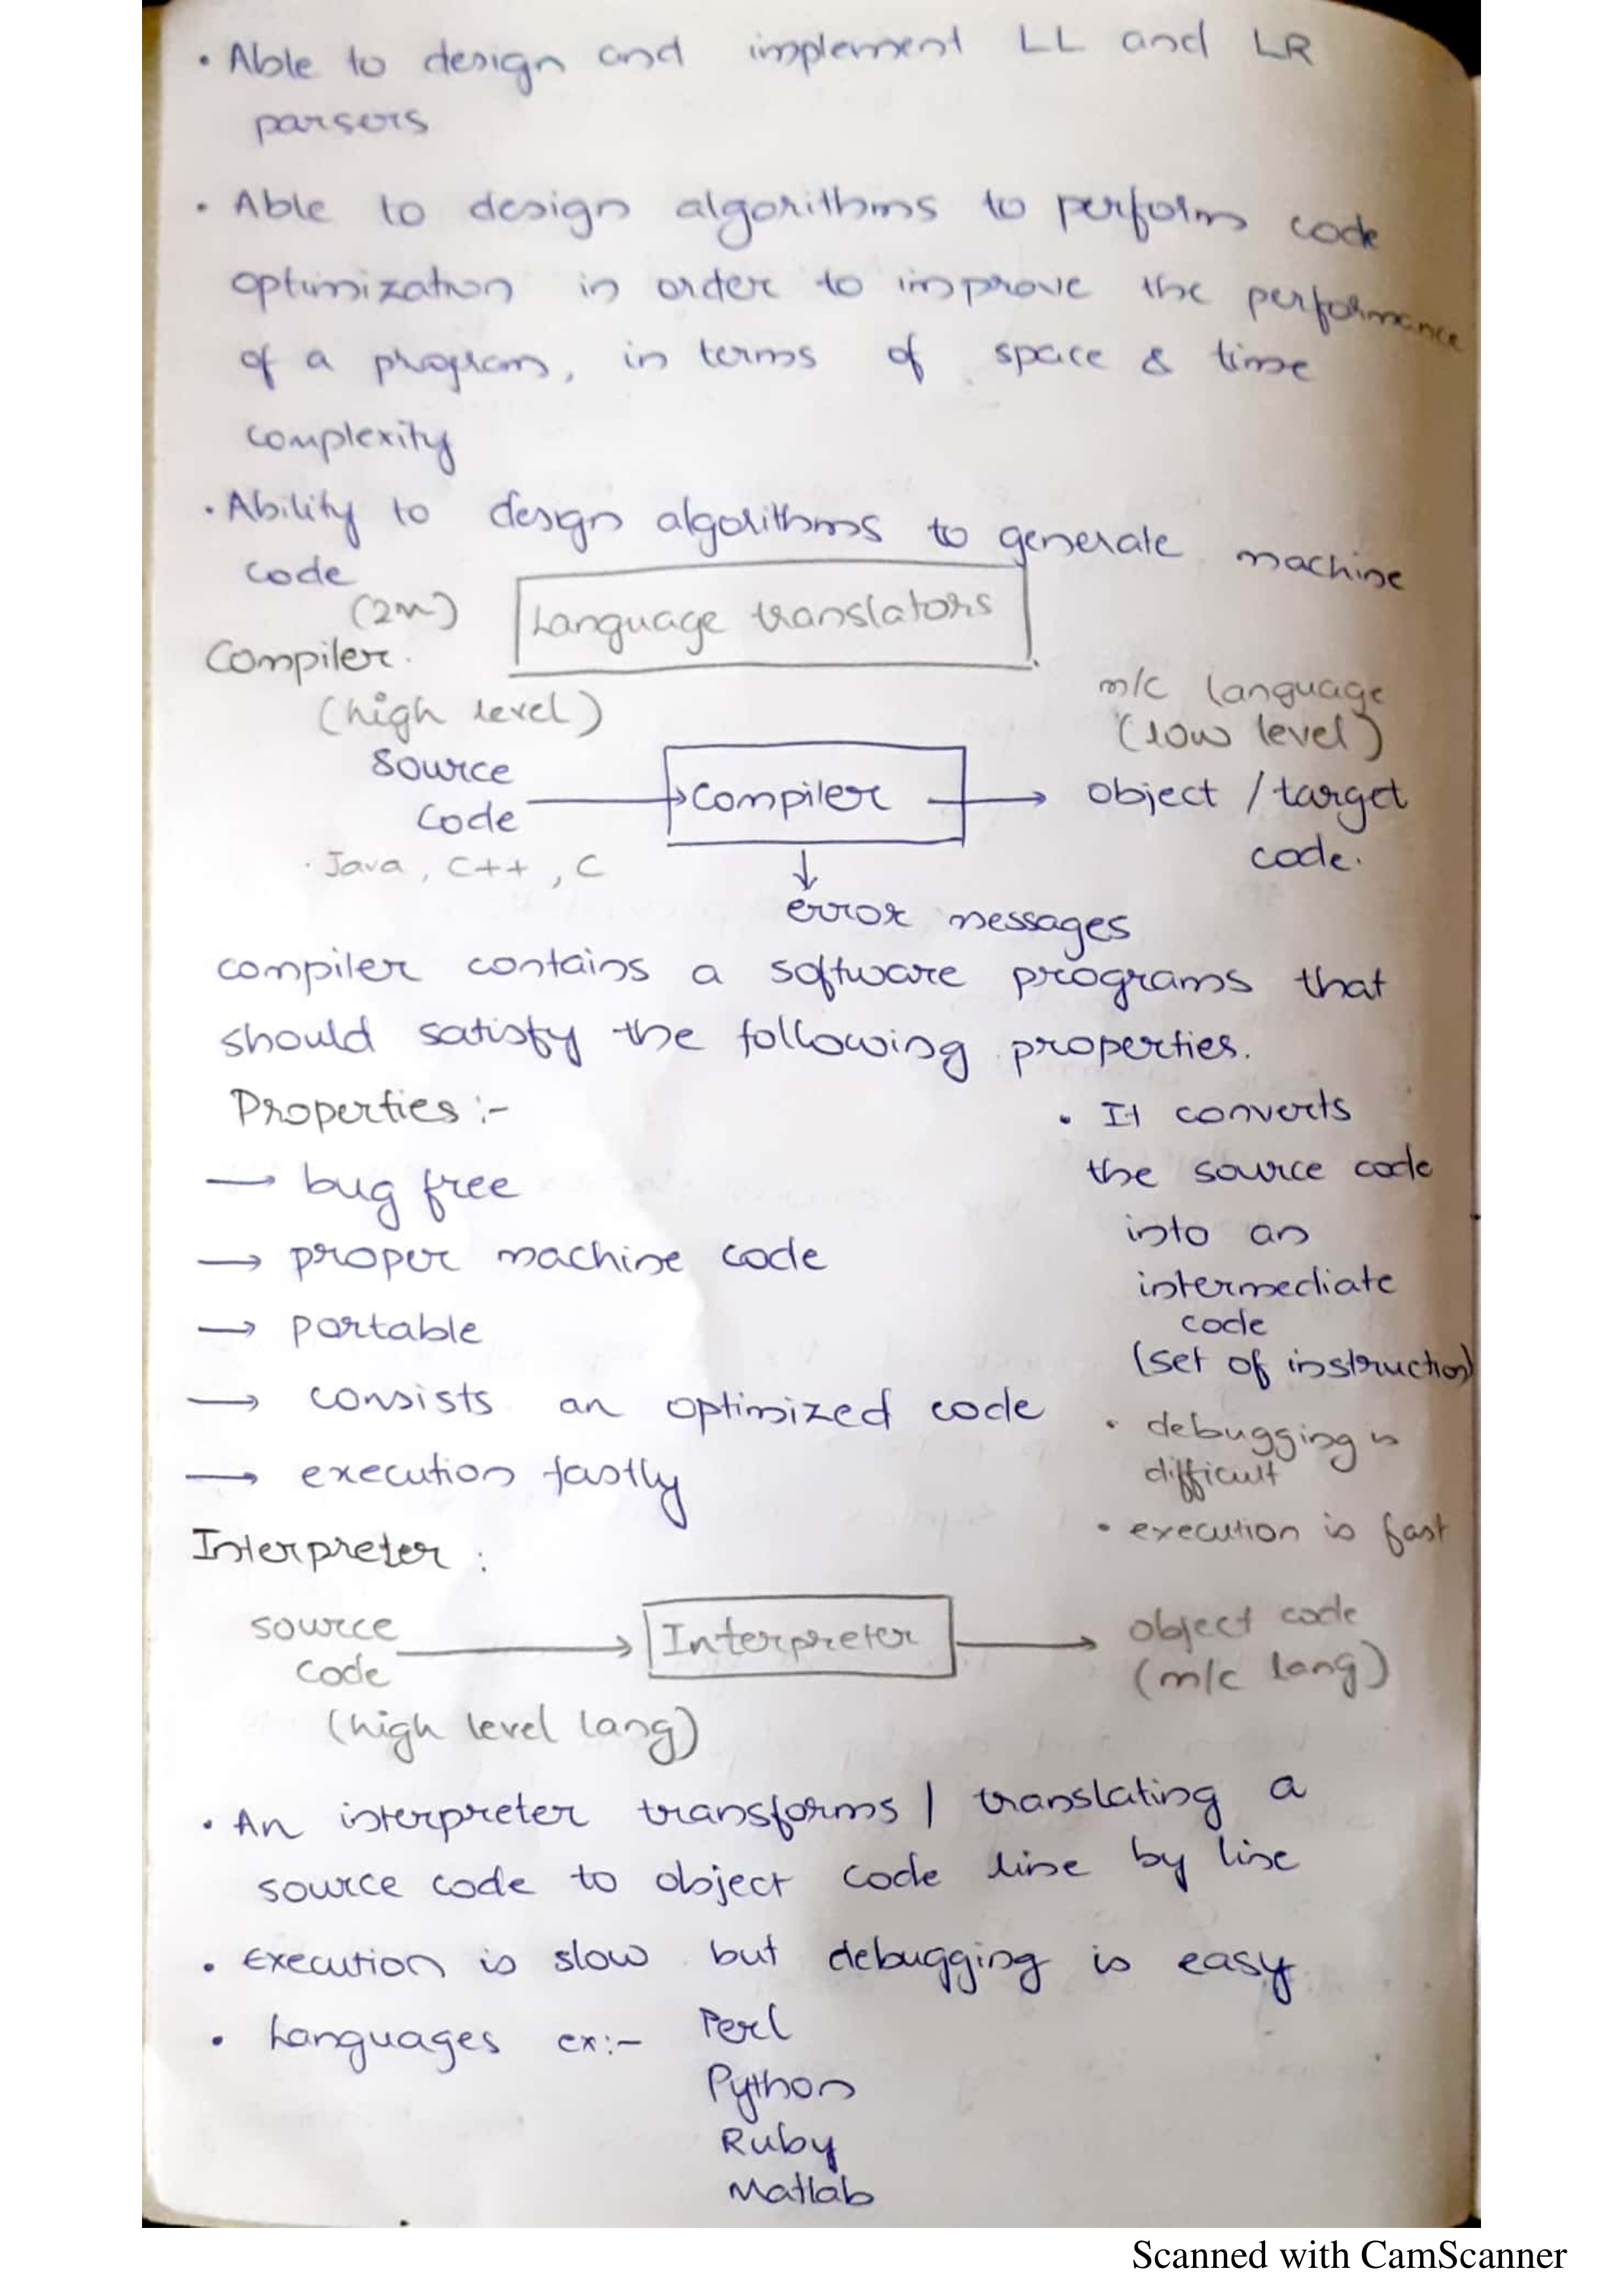 • Able to design and implement LL and LR
parsers
• Able to design algorithms to perform code
optimization in order to improve the performance
of a program, in terms of space & time
complexity
• Ability to design algorithms to generate machine
code
(2m)
Language translators
Compiler.
(high level)
m/c language
(low level)
source
code
Compiler
object / target
code.
• Java, C++, C
error messages
compiler contains a software programs that
should satisfy the following properties.
Properties :-
→ bug free
→ proper machine code
→ portable
→ consists an optimized code
→ execution fastly
• It converts
the source code
into an
intermediate
code
(set of instruction)
• debugging is
difficult
• execution is fast
Interpreter :
source
code
(high level lang)
Interpreter
object code
(m/c lang)
• An interpreter transforms / translating a
source code to object code line by line
• Execution is slow but debugging is easy
• Languages ex:- Perl
Python
Ruby
Matlab
Scanned with CamScanner